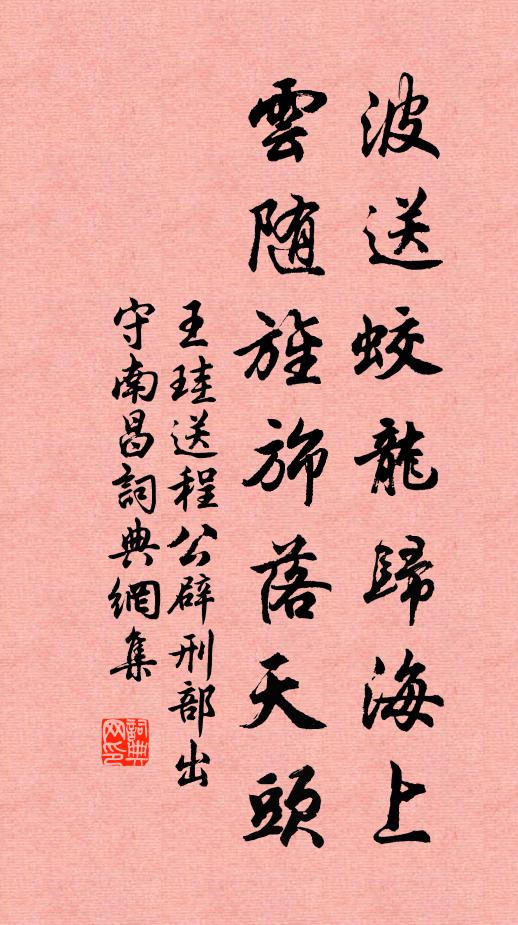 波送蛟龍歸海上
雲随旌斾落天頭
王珪送程公辟刑部出
守南昌詞典網集
詞典
网印